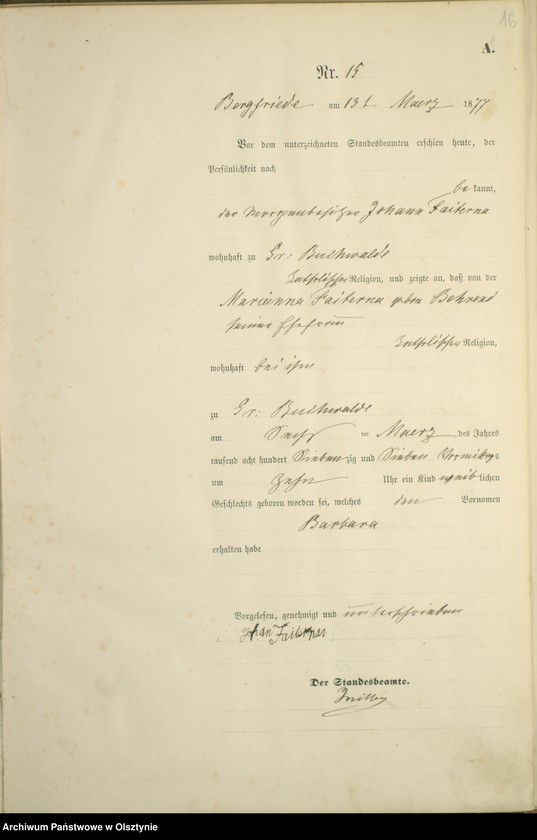 16
A.
Nr. 15
Bergfriede am 13t Maerz 1877
Vor dem unterzeichneten Standesbeamten erschien heute, der
Persönlichkeit nach
bekannt,
der Morgenbesitzer Johann Faiterna
wohnhaft zu Gr: Buchwalde
katholischer Religion, und zeigte an, daß von der
Marianna Faiterna geboren Behrend
seiner Ehefrau
katholischer Religion,
wohnhaft bei ihm
zu Gr: Buchwalde
am Sechs ten Maerz des Jahres
tausend acht hundert Siebenzig und Sieben Vormittags
um Zehn Uhr ein Kind weiblichen
Geschlechts geboren worden sei, welches den Vornamen
Barbara
erhalten habe
Vorgelesen, genehmigt und unterschrieben
Johan Faiternar
Der Standesbeamte.
Archiwum Państwowe w Olsztynie